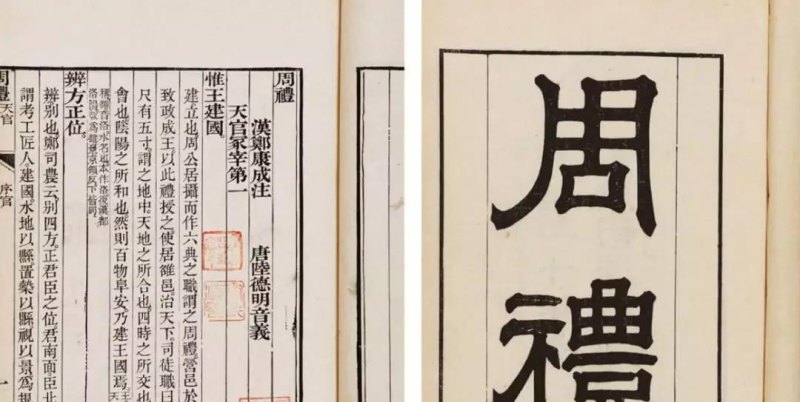 周禮
漢鄭康成注　唐陸德明音義
天官冢宰第一
惟王建國。
建立也。周公居攝而作六典之職，謂之周禮。營邑於
致政成王，以此禮授之，使居雒邑，治天下。司徒職曰
尺有五寸，謂之地中，天地之所合也，四時之所交也
會也，陰陽之所和也。然則百物阜安，乃建王國焉。
辨方正位。
辨別也。鄭司農云，別四方，正君臣之位，君南面，臣北
謂考工，匠人建國，水地以縣，置槷以縣，視以景，爲規
周禮 天官 序官 一
周禮